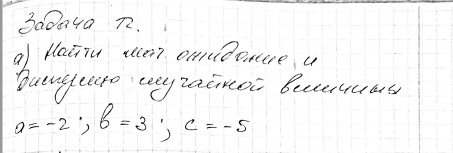 Задача 12.
а) Найти мат ожидание и
дисперсию случайной величины
a = -2 ; b = 3 ; c = -5